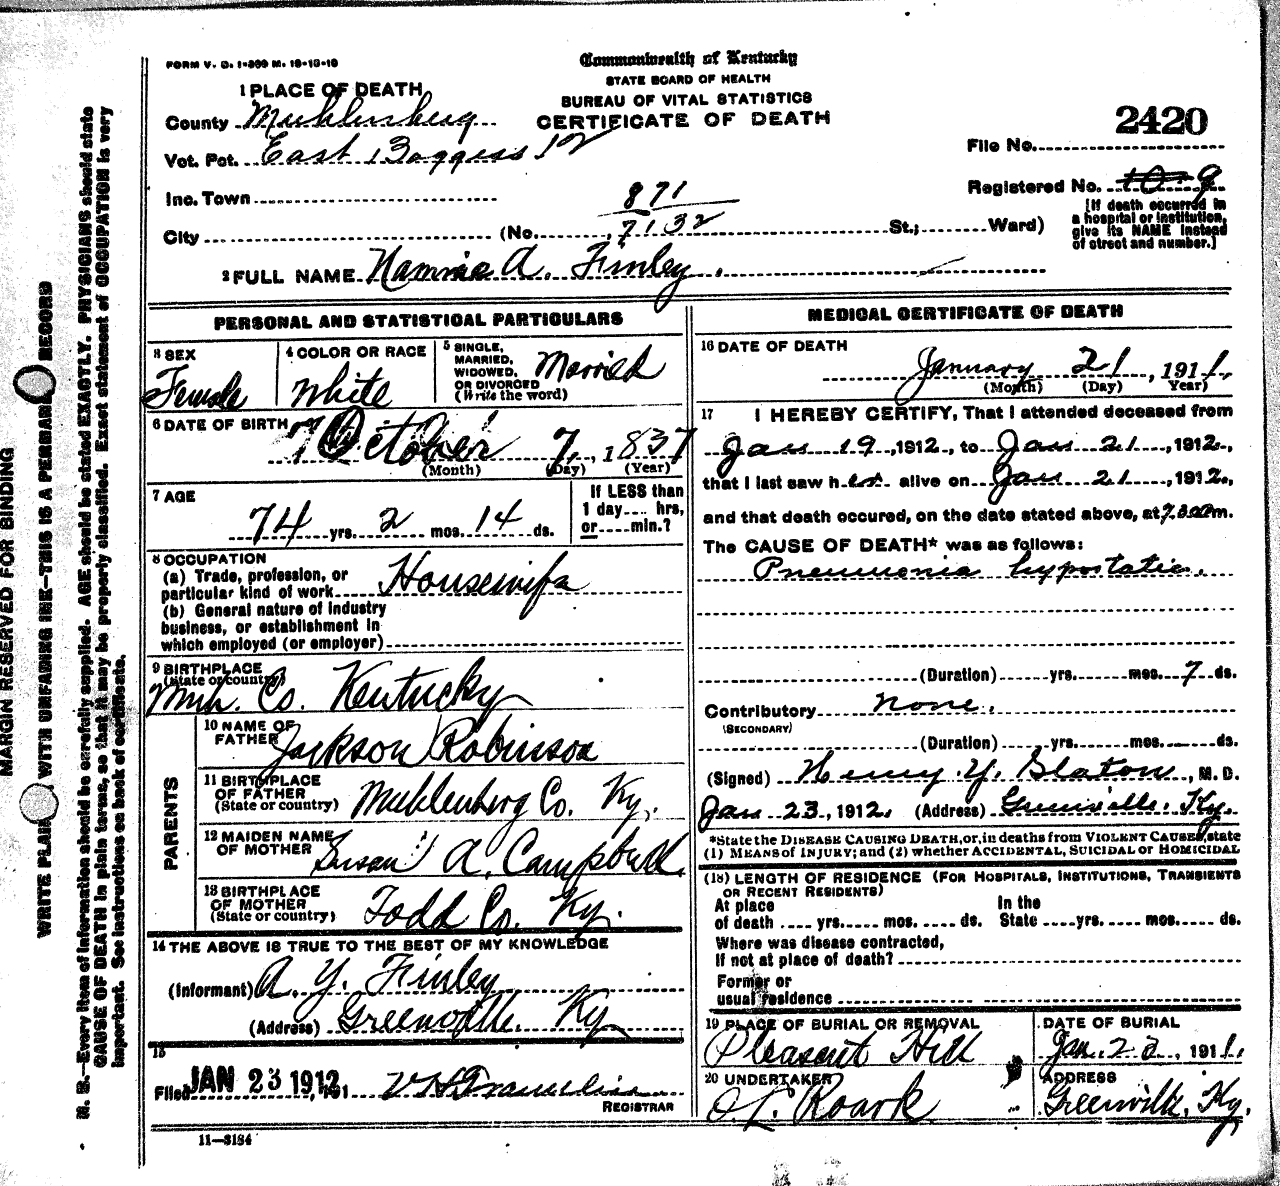 FORM V. D. 1-300 M. 10-10-10
Commonwealth of Kentucky
STATE BOARD OF HEALTH
BUREAU OF VITAL STATISTICS
CERTIFICATE OF DEATH
1 PLACE OF DEATH
County Muhlenberg
Vot. Pct. East Boggess 12
Inc. Town
City (No. St.; Ward)
871
7132
2420
File No.
Registered No. 10 9
[If death occurred in
a hospital or institution,
give its NAME instead
of street and number.]
2 FULL NAME Nannie A. Finley.
PERSONAL AND STATISTICAL PARTICULARS
3 SEX
Female
4 COLOR OR RACE
White
5 SINGLE,
MARRIED,
WIDOWED,
OR DIVORCED
(Write the word)
Married
6 DATE OF BIRTH
7 October 7, 1837
(Month) (Day) (Year)
7 AGE
74 yrs. 2 mos. 14 ds.
If LESS than
1 day.... hrs,
or.....min.?
8 OCCUPATION
(a) Trade, profession, or
particular kind of work Housewife
(b) General nature of industry
business, or establishment in
which employed (or employer)
9 BIRTHPLACE
(State or country)
Muh. Co. Kentucky
PARENTS
10 NAME OF
FATHER Jackson Robinson
11 BIRTHPLACE
OF FATHER
(State or country) Muhlenberg Co. Ky.
12 MAIDEN NAME
OF MOTHER Susan A. Campbell
13 BIRTHPLACE
OF MOTHER
(State or country) Todd Co. Ky.
14 THE ABOVE IS TRUE TO THE BEST OF MY KNOWLEDGE
(Informant) A. Y. Finley
(Address) Greenville. Ky
15
Filed JAN 23 1912, 191 REGISTRAR
11-3184
MEDICAL CERTIFICATE OF DEATH
16 DATE OF DEATH
January 21, 1911.
(Month) (Day) Year)
17 I HEREBY CERTIFY, That I attended deceased from
Jan 19, 1912, to Jan 21, 1912,
that I last saw her alive on Jan 21, 1912,
and that death occured, on the date stated above, at 7.30 m.
The CAUSE OF DEATH* was as follows:
Pneumonia hypostatic.
(Duration) yrs. mos. 7 ds.
Contributory none.
(SECONDARY)
(Duration) yrs. mos. ds.
(Signed) Henry Y. Slaton, M. D.
Jan 23, 1912. (Address) Greenville. Ky.
*State the DISEASE CAUSING DEATH, or, in deaths from VIOLENT CAUSES, state
(1) MEANS of INJURY; and (2) whether ACCIDENTAL, SUICIDAL OR HOMICIDAL
(18) LENGTH OF RESIDENCE (FOR HOSPITALS, INSTITUTIONS, TRANSIENTS
OR RECENT RESIDENTS)
At place In the
of death .... yrs..... mos..... ds. State ....yrs..... mos..... ds.
Where was disease contracted,
If not at place of death?
Former or
usual residence
19 PLACE OF BURIAL OR REMOVAL
Pleasant Hill
DATE OF BURIAL
Jan. 23, 1911.
20 UNDERTAKER
O. L. Roark
ADDRESS
Greenville, Ky.
MARGIN RESERVED FOR BINDING
WRITE PLAINLY, WITH UNFADING INK—THIS IS A PERMANENT RECORD
N. B.—Every item of information should be carefully supplied. AGE should be stated EXACTLY. PHYSICIANS should state
CAUSE OF DEATH in plain terms, so that it may be properly classified. Exact statement of OCCUPATION is very
important. See instructions on back of certificate.